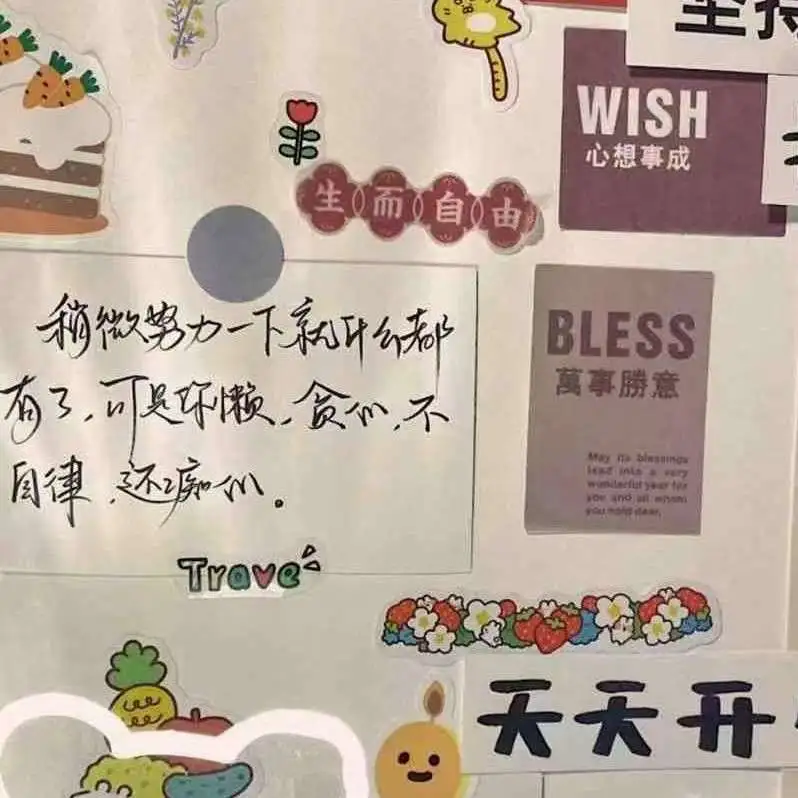 坚持
WISH
心想事成
生而自由
稍微努力一下就什么都
有了,可是你懒,贪心,不
自律,还痴心。
BLESS
萬事勝意
May its blessings
lead into a very
wonderful year for
you and all whom
you hold dear.
Trave
天天开